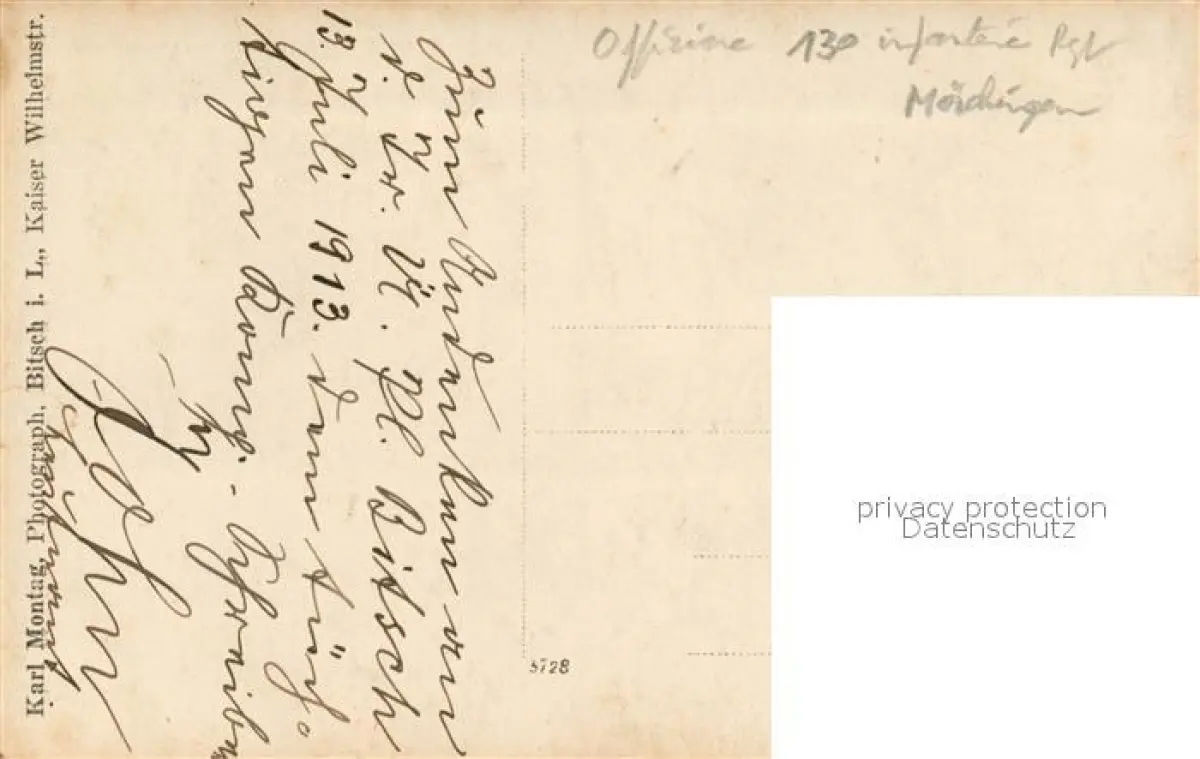 Offiziere 130 infanterie Rgt
Mörchingen
Zum Andenken an
d. Tr. Üb. Pl. Bitsch
13. Juli 1913. dem tüch-
Komp. - Schreiber
Karl Montag, Photograph, Bitsch i. L., Kaiser Wilhelmstr.
5728
privacy protection
Datenschutz